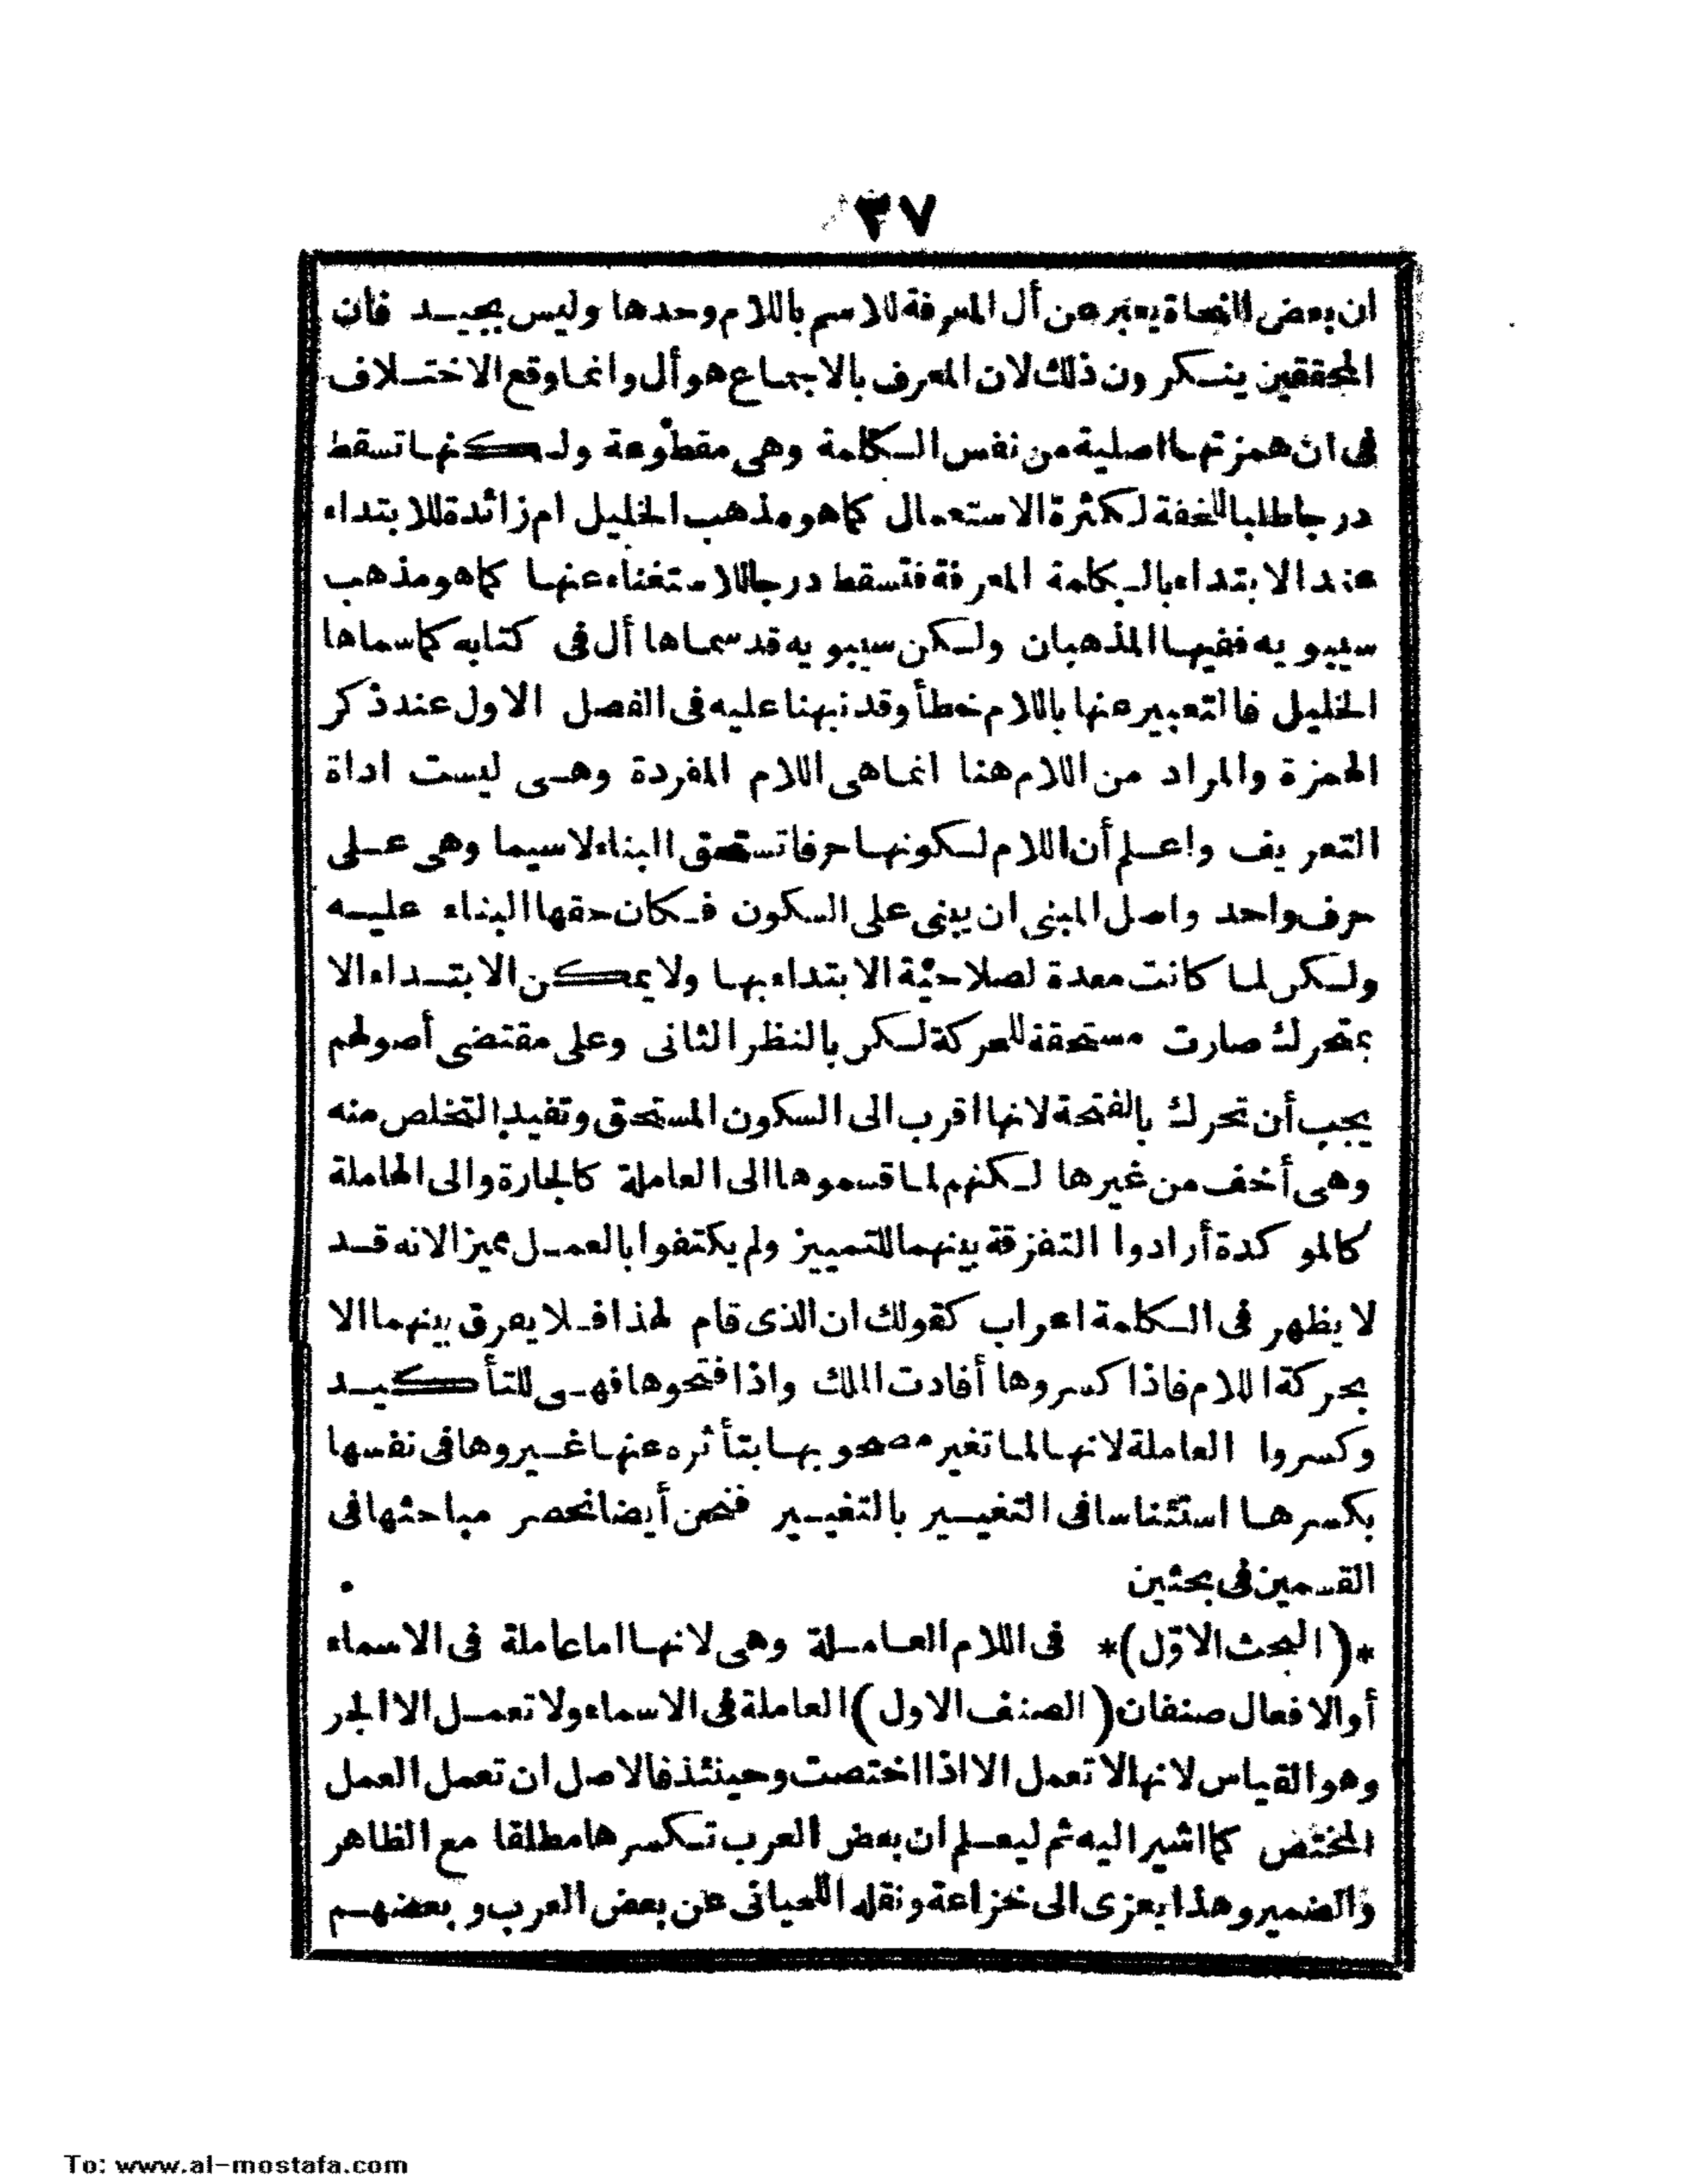 ٣٧
ان بعض النحاة يعبر عن أل المعرفة للاسم باللام وحدها وليس بجيد فان
المحققين ينكرون ذلك لان المعرف بالاجماع هو أل وانما وقع الاختلاف
فى ان همزتها اصلية من نفس الكلمة وهى مقطوعة ولكنها تسقط
درجا طلبا للخفة لكثرة الاستعمال كما هو مذهب الخليل ام زائدة للابتداء
عند الابتداء بالكلمة المعرفة فتسقط درجا للاستغناء عنها كما هو مذهب
سيبويه ففيها المذهبان ولكن سيبويه قد سماها أل فى كتابه كما سماها
الخليل فالتعبير عنها باللام خطأ وقد نبهنا عليه فى الفصل الاول عند ذكر
الهمزة والمراد من اللام هنا انما هى اللام المفردة وهى ليست اداة
التعريف واعلم أن اللام لكونها حرفا تستحق البناء لاسيما وهى على
حرف واحد واصل المبنى ان يبنى على السكون فكان حقها البناء عليه
ولكن لما كانت معدة لصلاحية الابتداء بها ولا يمكن الابتداء الا
بمتحرك صارت مستحقة للحركة لكن بالنظر الثانى وعلى مقتضى أصولهم
يجب أن تحرك بالفتحة لانها اقرب الى السكون المستحق وتفيد التخلص منه
وهى أخف من غيرها لكنهم لما قسموها الى العاملة كالجارة والى الهاملة
كالموكدة أرادوا التفرقة بينهما للتمييز ولم يكتفوا بالعمل مميزا لانه قد
لا يظهر فى الكلمة اعراب كقولك ان الذى قام لهذا فلا يفرق بينهما الا
بحركة اللام فاذا كسروها أفادت الملك واذا فتحوها فهى للتأكيد
وكسروا العاملة لانها لما تغير مصحوبها بتأثره عنها غيروها فى نفسها
بكسرها استئناسا فى التغيير بالتغيير فنحن أيضا نحصر مباحثها فى
القسمين فى بحثين
*(البحث الاوّل)* فى اللام العاملة وهى لانها اما عاملة فى الاسماء
أو الافعال صنفان (الصنف الاول) العاملة فى الاسماء ولا تعمل الا الجر
وهو القياس لانها لا تعمل الا اذا اختصت وحينئذ فالاصل ان تعمل العمل
المختص كما اشير اليه ثم ليعلم ان بعض العرب تكسرها مطلقا مع الظاهر
والضمير وهذا يعزى الى خزاعة ونقله اللحيانى عن بعض العرب وبعضهم
To: www.al-mostafa.com